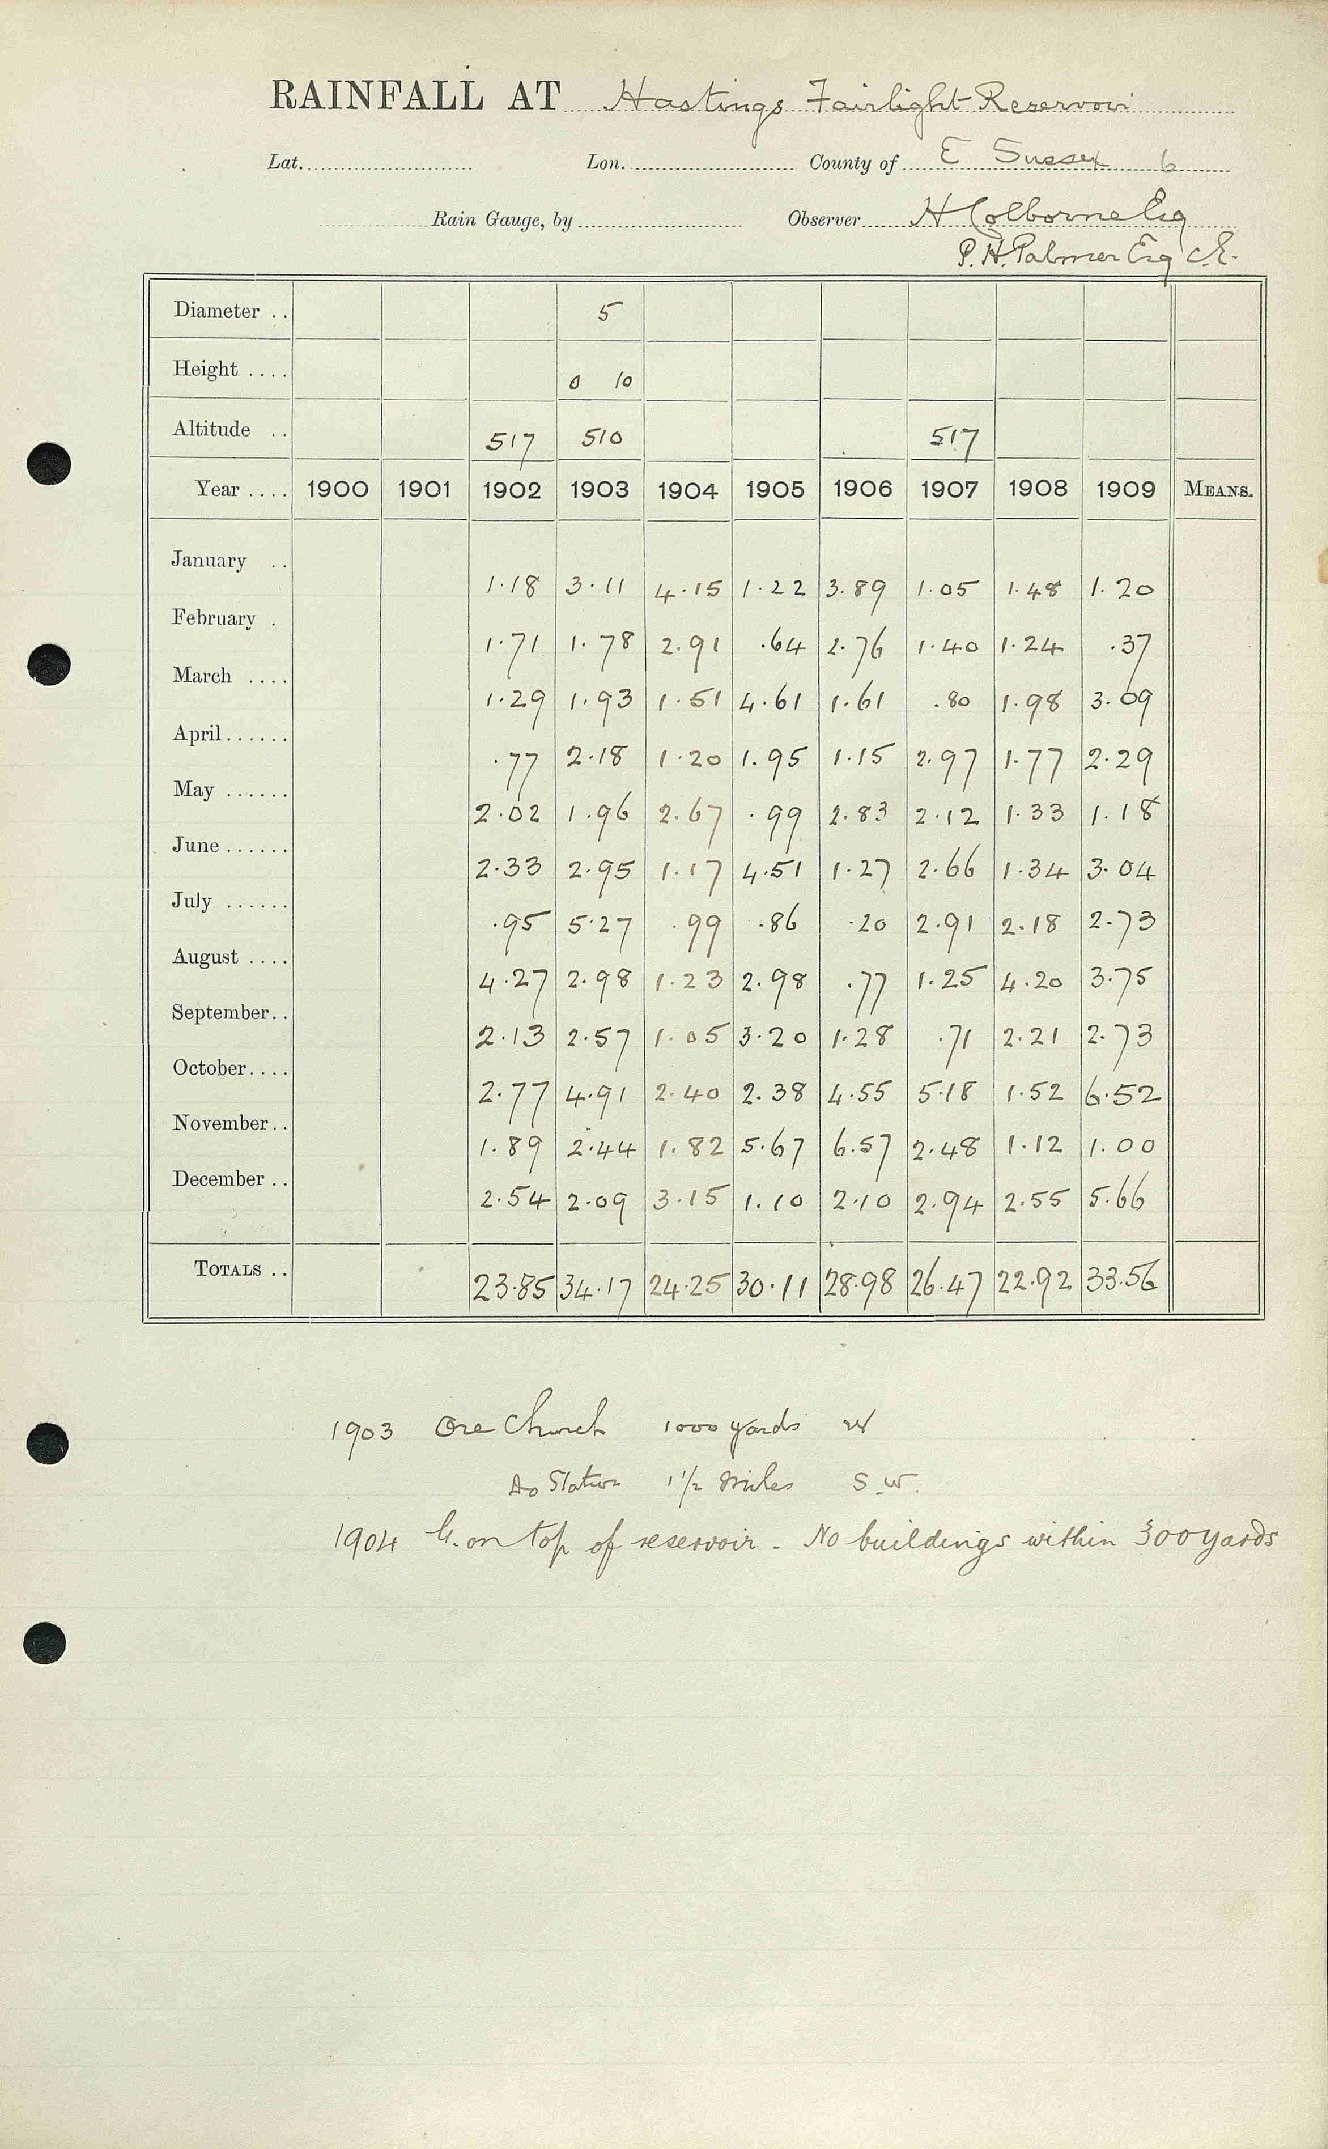 RAINFALL AT Hastings Fairlight Reservoir
Lat. Lon. County of E Sussex 6
Rain Gauge, by Observer H Colborne Esq
P. H. Palmer Esq C.E.
Diameter .. 5
Height .... 0 10
Altitude .. 517 510 517
Year .... 1900 1901 1902 1903 1904 1905 1906 1907 1908 1909 MEANS.
January .. 1.18 3.11 4.15 1.22 3.89 1.05 1.48 1.20
February . 1.71 1.78 2.91 .64 2.76 1.40 1.24 .37
March .... 1.29 1.93 1.51 4.61 1.61 .80 1.98 3.09
April...... .77 2.18 1.20 1.95 1.15 2.97 1.77 2.29
May ...... 2.02 1.96 2.67 .99 2.83 2.12 1.33 1.18
June ...... 2.33 2.95 1.17 4.51 1.27 2.66 1.34 3.04
July ...... .95 5.27 .99 .86 .20 2.91 2.18 2.73
August .... 4.27 2.98 1.23 2.98 .77 1.25 4.20 3.75
September.. 2.13 2.57 1.05 3.20 1.28 .71 2.21 2.73
October.... 2.77 4.91 2.40 2.38 4.55 5.18 1.52 6.52
November.. 1.89 2.44 1.82 5.67 6.57 2.48 1.12 1.00
December .. 2.54 2.09 3.15 1.10 2.10 2.94 2.55 5.66
TOTALS .. 23.85 34.17 24.25 30.11 28.98 26.47 22.92 33.56
1903 Ore Church 1000 yards W
Do Station 1 1/2 miles S.W.
1904 G. on top of reservoir - No buildings within 300 yards